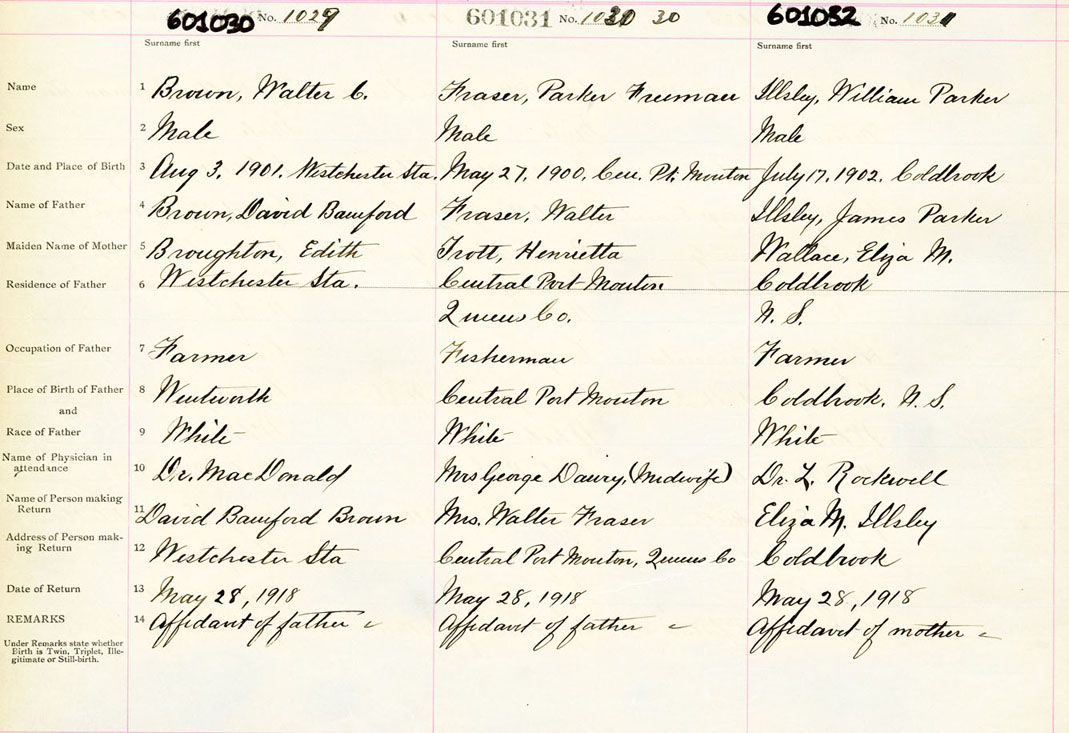 601030 No. 1029 601031 No. 1030 30 601032 No. 1031
Surname first Surname first Surname first
Name 1 Brown, Walter C. Fraser, Parker Freeman Illsley, William Parker
Sex 2 Male Male Male
Date and Place of Birth 3 Aug 3, 1901. Westchester Sta. May 27, 1900, Cen. Pt. Mouton July 17, 1902. Coldbrook
Name of Father 4 Brown, David Bamford Fraser, Walter Illsley, James Parker
Maiden Name of Mother 5 Broughton, Edith Trott, Henrietta Wallace, Eliza M.
Residence of Father 6 Westchester Sta. Central Port Mouton Coldbrook
Queens Co. N. S.
Occupation of Father 7 Farmer Fisherman Farmer
Place of Birth of Father 8 Wentworth Central Port Mouton Coldbrook, N. S.
and
Race of Father 9 White White White
Name of Physician in
attendance 10 Dr. MacDonald Mrs George (Midwife) Dr. L. Rockwell
Name of Person making
Return 11 David Bamford Brown Mrs. Walter Fraser Eliza M. Illsley
Address of Person mak-
ing Return 12 Westchester Sta Central Port Mouton, Queens Co Coldbrook
Date of Return 13 May 28, 1918 May 28, 1918 May 28, 1918
REMARKS 14 Affidavit of father Affidavit of father Affidavit of mother
Under Remarks state whether
Birth is Twin, Triplet, Ille-
gitimate or Still-birth.